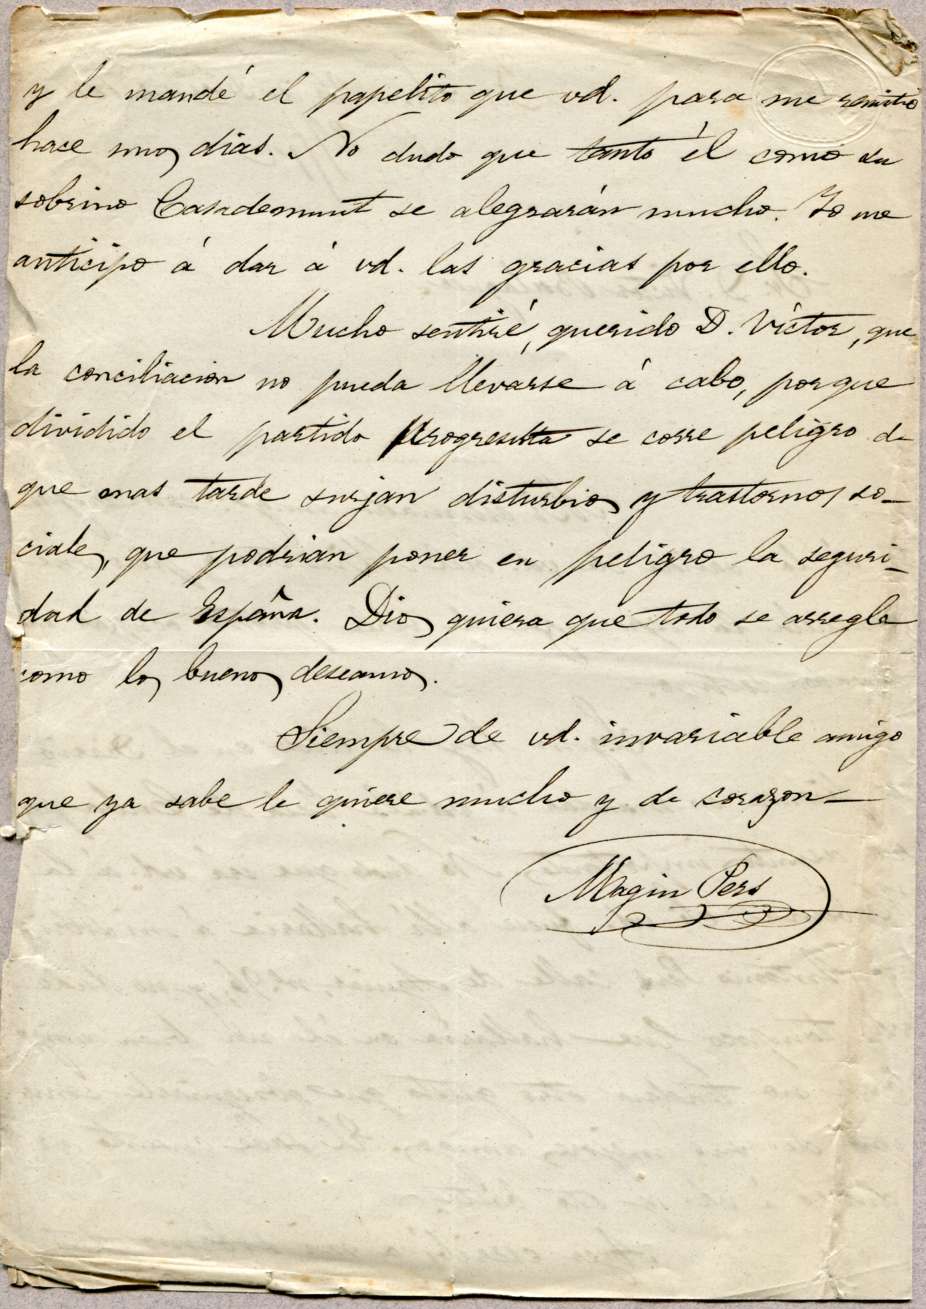 y le mandé el papelito que vd. para me remitió
hace unos dias. No dudo que tanto él como su
sobrino Casademunt se alegrarán mucho. Yo me
anticipo á dar á vd. las gracias por ello.
Mucho sentiré, querido D. Víctor, que
la conciliacion no pueda llevarse á cabo, porque
dividido el partido progresista se corre peligro de
que mas tarde surjan disturbios y trastornos so-
ciales, que podrian poner en peligro la seguri-
dad de España. Dios quiera que todo se arregle
como los buenos deseamos.
Siempre de vd. invariable amigo
que ya sabe le quiere mucho y de corazon—
Magin Pers